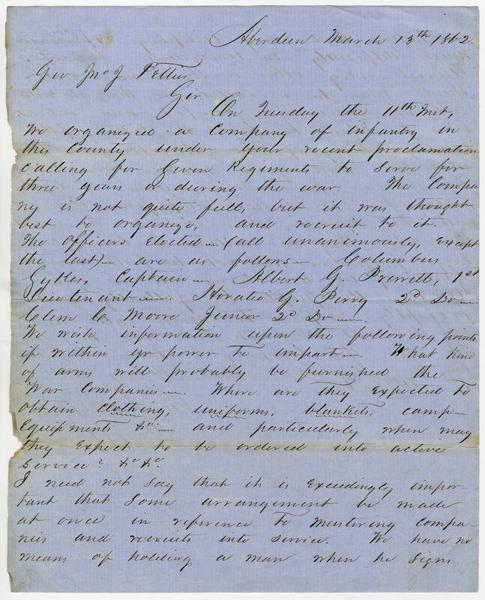 Aberdeen March 13th 1862
Gov Jno J. Pettus
Sir
On Tuesday the 11th Inst,
We organized a Company of infantry in
this County under your recent proclamation
calling for Seven Regiments to serve for
three years or during the war. The Compa
ny is not quite full, but it was thought
best to organize, and recruit to it.
The Officers Elected — (all unanimously, except
the last) — are as follows — Columbus
Sykes, Captain — Albert G. Prewitt, 1st
Lieutenant — Horatio G. Perry 2d Do —
Clem C. Moore Junior 2d Do —
We wish information upon the following points
if within yr power to impart — What kind
of arms will probably be furnished the
War Companies — Where are they Expected to
obtain clothing, uniforms, blankets, camp —
Equipments &c — and particularly when may
they Expect to be ordered into active
Service? &c &c
I need not say that it is Exceedingly impor-
tant that some arrangement be made
at once in reference to mustering compa
nies and recruits into service. We have no
means of holding a man when he signs